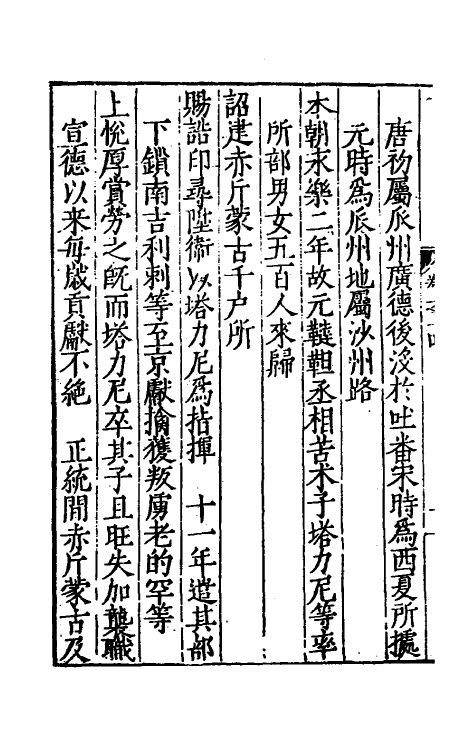 唐初屬瓜州廣德後没於吐番宋時爲西夏所據
元時爲瓜州地屬沙州路
本朝永樂二年故元韃靼丞相苦术子塔力尼等率
所部男女五百人來歸
詔建赤斤蒙古千户所
賜誥印尋陞衛以塔力尼爲指揮　十一年遣其部
下鎖南吉利剌等至京獻擒獲叛虜老的罕等
上悅厚賞勞之旣而塔力尼卒其子且旺失加襲職
宣德以来每歲貢獻不絶　正統間赤斤蒙古及